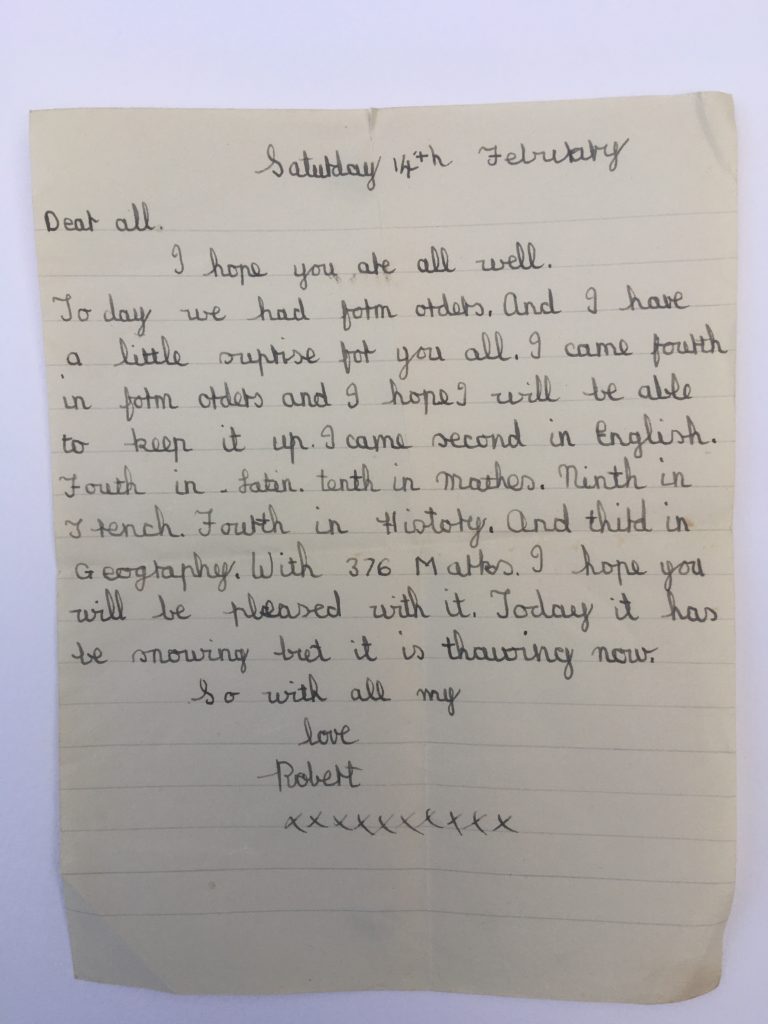 Saturday 14th February
Dear all.
I hope you are all well.
To day we had form orders. And I have
a little suprise for you all. I came fourth
in form orders and I hope I will be able
to keep it up. I came second in English.
Fouth in - Latin. tenth in mathes. Ninth in
French. Fourth in History. And third in
Geography. With 376 Marks. I hope you
will be pleased with it. Today it has
be snowing but it is thawing now.
So with all my
love
Robert
xxxxxxxxxx